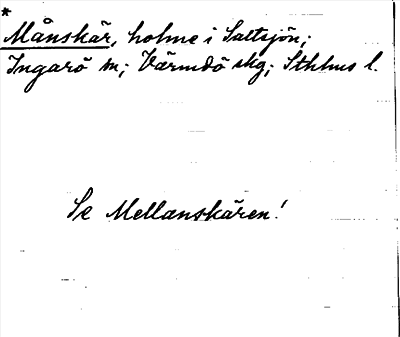 *
Månskär, holme i Saltsjön;
Ingarö sn; Värmdö skg; Sthlms l.
Se Mellanskären!